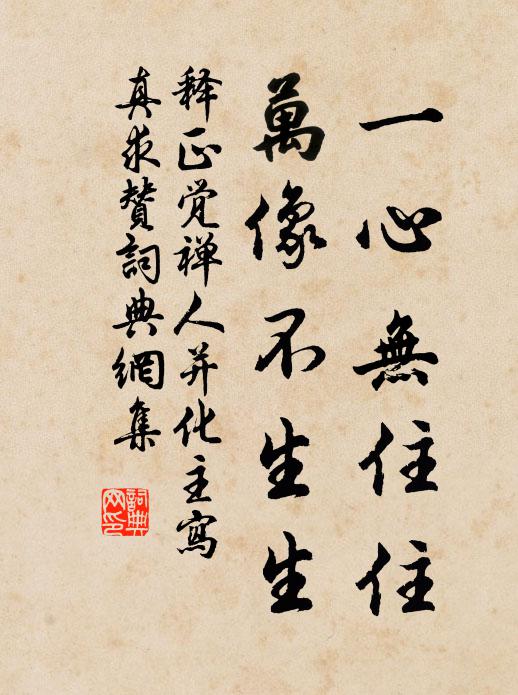 一心無住住
萬像不生生
释正觉禅人并化主寫
真求赞詞典網集
詞典
网印